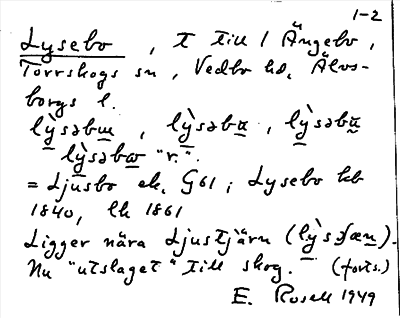 1-2
Lysebo, T till 1 Ängebo,
Torrskogs sn, Vedbo hd, Älvs-
borgs l.
lỳsəbɯ, lỳsəbu, lỳsəbu
lỳsəbɷ "r."
= Ljusbo ek. G61; Lysebo kb
1840, lk 1861
Ligger nära Ljustjärn (lỳsʃæn).
Nu "utslaget" till skog. (forts.)
E. Rosell 1949